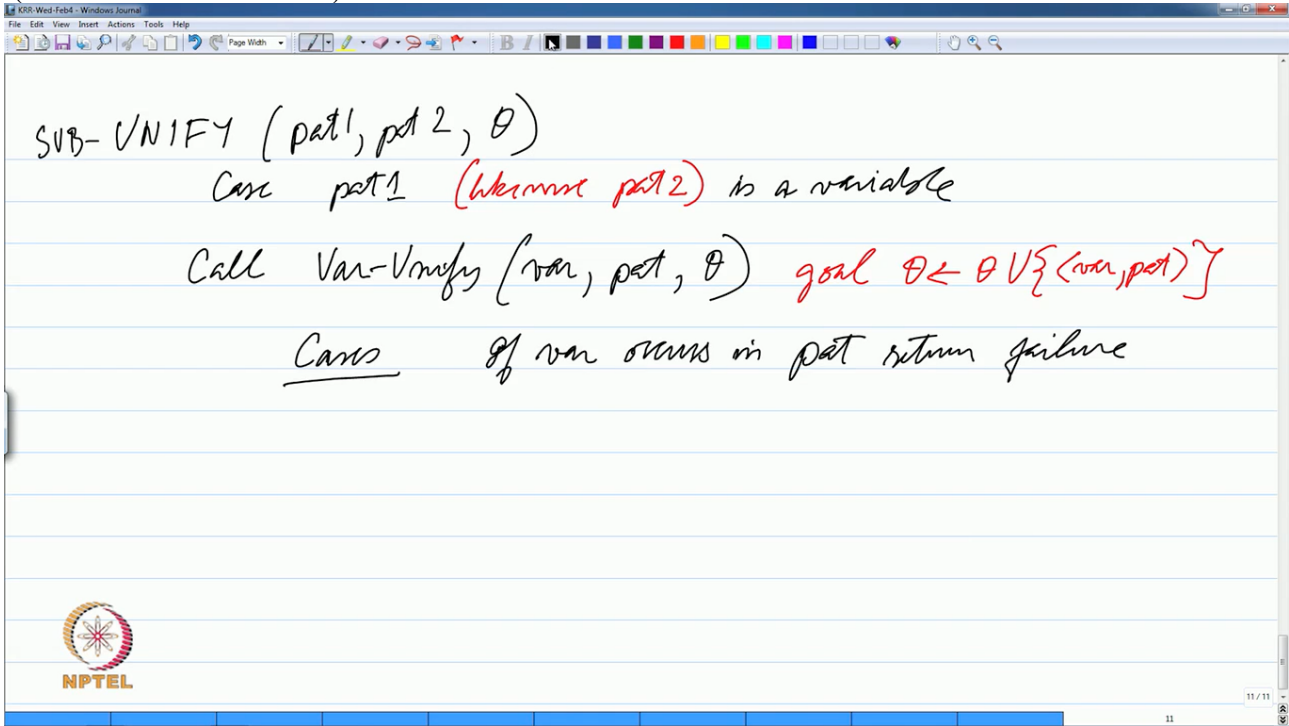 KRR-Wed-Feb4 - Windows Journal
File Edit View Insert Actions Tools Help
Page Width
SUB-UNIFY (pat1, pat 2, θ)
Case pat1 (likewise pat2) is a variable
Call Var-Unify (var, pat, θ) goal θ ← θ U {<var, pat>}
Cases If var occurs in pat return failure
NPTEL
11 / 11
11